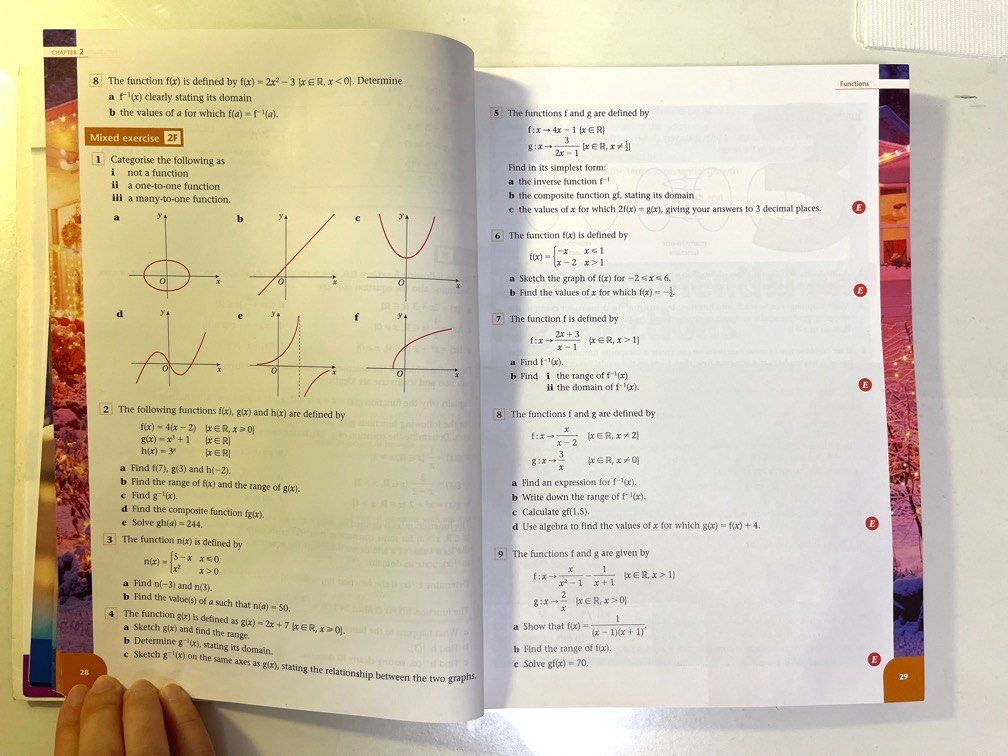 CHAPTER 2
8 The function f(x) is defined by f(x) = 2x² − 3 {x ∈ ℝ, x < 0}. Determine
a f⁻¹(x) clearly stating its domain
b the values of a for which f(a) = f⁻¹(a).
Mixed exercise 2F
1 Categorise the following as
i not a function
ii a one-to-one function
iii a many-to-one function.
a y O x
b y O x
c y O x
d y O x
e y O x
f y O x
2 The following functions f(x), g(x) and h(x) are defined by
f(x) = 4(x − 2) {x ∈ ℝ, x ⩾ 0}
g(x) = x³ + 1 {x ∈ ℝ}
h(x) = 3ˣ {x ∈ ℝ}
a Find f(7), g(3) and h(−2).
b Find the range of f(x) and the range of g(x).
c Find g⁻¹(x).
d Find the composite function fg(x).
e Solve gh(a) = 244.
3 The function n(x) is defined by
n(x) = { 5 − x x ⩽ 0
x² x > 0
a Find n(−3) and n(3).
b Find the value(s) of a such that n(a) = 50.
4 The function g(x) is defined as g(x) = 2x + 7 {x ∈ ℝ, x ⩾ 0}.
a Sketch g(x) and find the range.
b Determine g⁻¹(x), stating its domain.
c Sketch g⁻¹(x) on the same axes as g(x), stating the relationship between the two graphs.
28
Functions
5 The functions f and g are defined by
f : x → 4x − 1 {x ∈ ℝ}
g : x → 3/(2x − 1) {x ∈ ℝ, x ≠ ½}
Find in its simplest form:
a the inverse function f⁻¹
b the composite function gf, stating its domain
c the values of x for which 2f(x) = g(x), giving your answers to 3 decimal places. E
6 The function f(x) is defined by
f(x) = { −x x ⩽ 1
x − 2 x > 1
a Sketch the graph of f(x) for −2 ⩽ x ⩽ 6.
b Find the values of x for which f(x) = −½. E
7 The function f is defined by
f : x → (2x + 3)/(x − 1) {x ∈ ℝ, x > 1}
a Find f⁻¹(x).
b Find i the range of f⁻¹(x)
ii the domain of f⁻¹(x). E
8 The functions f and g are defined by
f : x → x/(x − 2) {x ∈ ℝ, x ≠ 2}
g : x → 3/x {x ∈ ℝ, x ≠ 0}
a Find an expression for f⁻¹(x).
b Write down the range of f⁻¹(x).
c Calculate gf(1.5).
d Use algebra to find the values of x for which g(x) = f(x) + 4. E
9 The functions f and g are given by
f : x → x/(x² − 1) − 1/(x + 1) {x ∈ ℝ, x > 1}
g : x → 2/x {x ∈ ℝ, x > 0}
a Show that f(x) = 1/((x − 1)(x + 1)).
b Find the range of f(x).
c Solve gf(x) = 70. E
29